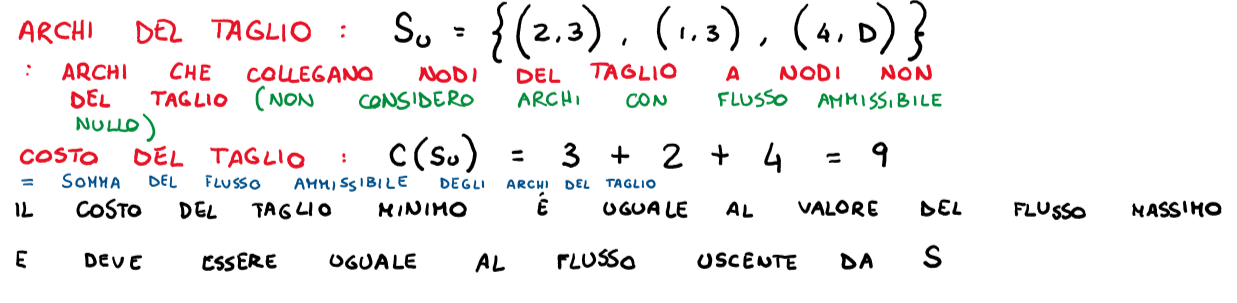 ARCHI DEL TAGLIO : Su = {(2,3), (1,3), (4,D)}
: ARCHI CHE COLLEGANO NODI DEL TAGLIO A NODI NON
DEL TAGLIO (NON CONSIDERO ARCHI CON FLUSSO AMMISSIBILE
NULLO)
COSTO DEL TAGLIO : C(Su) = 3 + 2 + 4 = 9
= SOMMA DEL FLUSSO AMMISSIBILE DEGLI ARCHI DEL TAGLIO
IL COSTO DEL TAGLIO MINIMO É UGUALE AL VALORE DEL FLUSSO MASSIMO
E DEVE ESSERE UGUALE AL FLUSSO USCENTE DA S